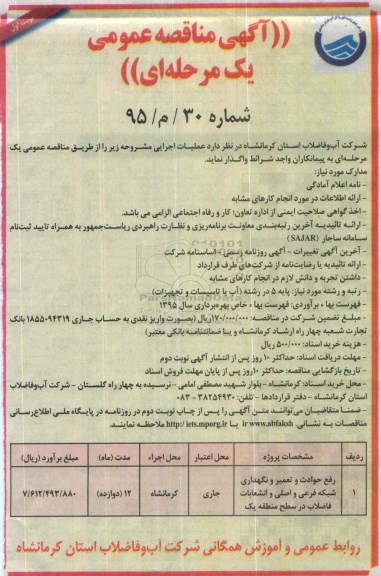 نوبت اول
((آگهی مناقصه عمومی
یک مرحله‌ای))
شماره ۳۰ / م / ۹۵
شرکت آب‌وفاضلاب استان کرمانشاه در نظر دارد عملیات اجرایی مشروحه زیر را از طریق مناقصه عمومی یک
مرحله‌ای به پیمانکاران واجد شرائط واگذار نماید.
مدارک مورد نیاز:
- نامه اعلام آمادگی
- ارائه اطلاعات در مورد انجام کارهای مشابه
- اخذ گواهی صلاحیت ایمنی از اداره تعاون؛ کار و رفاه اجتماعی الزامی می باشد.
- ارائـه تائیدیـه آخرین رتبه‌بنـدی معاونـت برنامه‌ریزی و نظارت راهبردی ریاست‌جمهور به همراه تایید ثبت‌نام
سـامانه ساجار (SAJAR)
- آخرین آگهی تغییرات - آگهی روزنامه رسمی - اساسنامه شرکت
- ارائه تائیدیه یا رضایت‌نامه از شرکت‌های طرف قرارداد
- داشتن تجربه و دانش لازم در انجام کارهای مشابه
- رتبه و رشته مورد نیاز: پایه ۵ در رشته (آب یا تاسیسات و تجهیزات)
- فهرست بها ، برآوردی: فهرست بها ، خاص بهره‌برداری سال ۱۳۹۵
- مبلـغ تضمین شـرکت در مناقصـه: ۱۷۰/۰۰۰/۰۰۰ریال (بصورت واریز نقدی به حساب جـاری ۱۸۵۵۰۹۴۳۱۹ بانک
تجارت شـعبه چهار راه ارشـاد کرمانشـاه و یـا ضمانتنامـه بانکی معتبر)
- هزینه خرید اسناد: ۵۰۰/۰۰۰ ریال
- مهلت دریافت اسناد: حداکثر ۱۰ روز پس از انتشار آگهی نوبت دوم
- تاریخ بازگشایی مناقصه: حداکثر ۱۰ روز پس از پایان مهلت فروش اسناد
- محل خرید اسـناد: کرمانشاه - بلوار شـهید مصطفی امامی - نرسیده به چهار راه گلستان - شرکت آب‌وفاضلاب
استان کرمانشاه - دفتر قراردادها - تلفن: ۳۸۲۵۴۹۳۰ - ۰۸۳
- ضمنـا متقاضیـان می‌تواننـد متـن آگهـی را پـس از چـاپ نوبـت دوم در روزنامـه در پایگاه ملـی اطلاع‌رسـانی
مناقصـات بـه نشـانی: ir www.abfaksh یـا http://iets.mporg.ir ملاحظـه نماینـد.
ردیف | مشخصات پروژه | محل اعتبار | محل اجراء | مدت (ماه) | مبلغ برآورد (ریال)
۱ | رفع حوادث و تعمیر و نگهداری شبکه فرعی و اصلی و انشعابات فاضلاب در سطح منطقه یک | جاری | کرمانشاه | ۱۲ (دوازده) | ۷/۶۱۲/۴۹۳/۸۸۰
روابط عمومی و آموزش همگانی شرکت آب‌وفاضلاب استان کرمانشاه